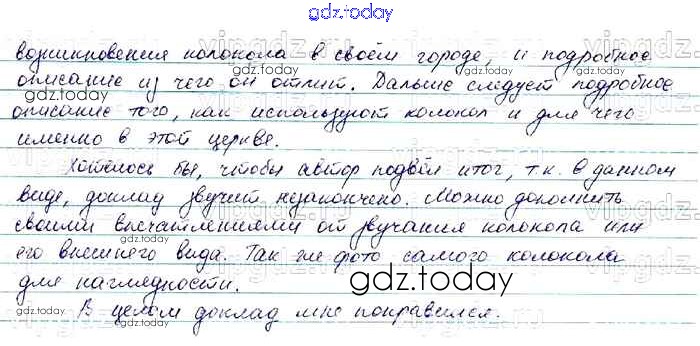 gdz.today
возникновения колокола в своём городе, и подробное
описание из чего он отлит. Дальше следует подробное
описание того, как используют колокол и для чего
именно в этой церкве.
Хотелось бы, чтобы автор подвёл итог, т.к. в данном
виде, доклад звучит незакончено. Можно дополнить
своими впечатлениями от звучания колокола или
его внешнего вида. Так же фото самого колокола
для наглядности.
gdz.today
В целом доклад мне понравился.